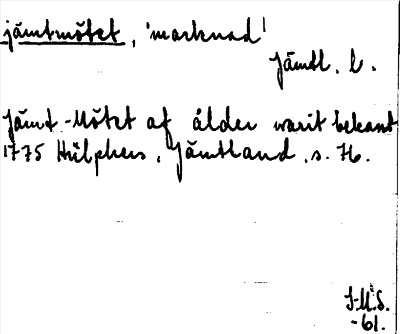 jämtmötet, 'marknad'
Jämtl. l.
Jämt-Mötet af ålder warit bekant
1775 Hülphers, Jämtland, s. 76.
J-M.S.
-61.